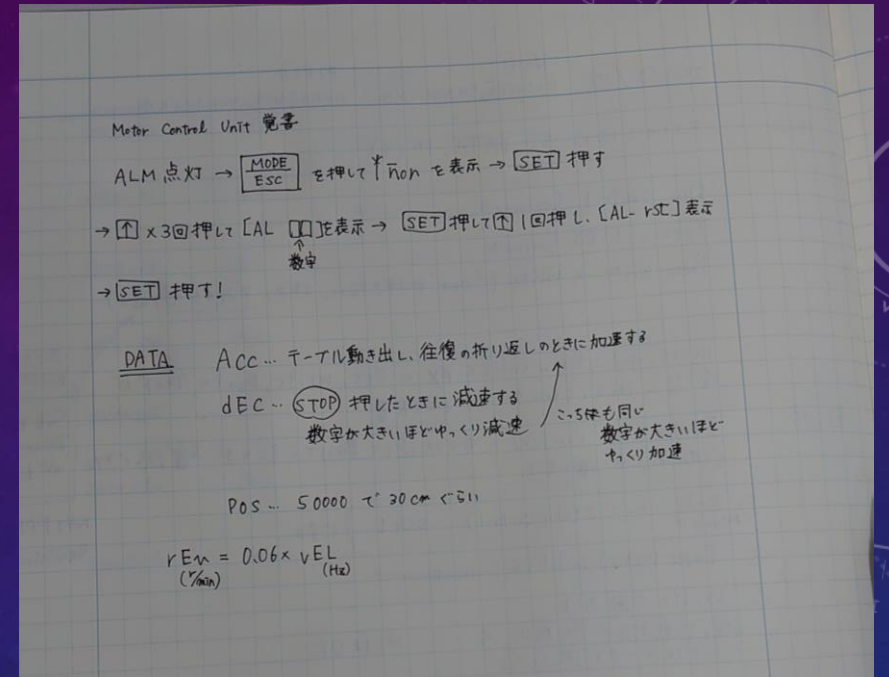 Motor Control Unit 覚書
ALM 点灯 → MODE/ESC を押して non を表示 → SET 押す
→ ↑ ×3回押して [AL □□]を表示 → SET 押して ↑ 1回押し、[AL-rSt] 表示
↑
数字
→ SET 押す!
DATA Acc… テーブル動き出し、往復の折り返しのときに加速する
dEC… STOP 押したときに減速する
数字が大きいほどゆっくり減速
も同じ
数字が大きいほど
ゆっくり加速
POS… 50000 で 30cm ぐらい
rEv = 0.06× vEL
(r/min) (Hz)